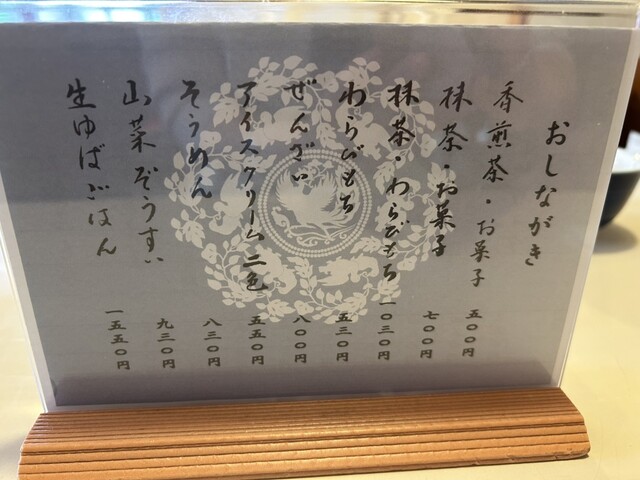 おしながき
香煎茶・お菓子
五〇〇円
抹茶・お菓子
七〇〇円
抹茶・わらびもち
一〇三〇円
わらびもち
五三〇円
ぜんざい
八〇〇円
アイスクリーム二色
五五〇円
そうめん
八三〇円
山菜ぞうすい
九三〇円
生ゆばごはん
一五五〇円